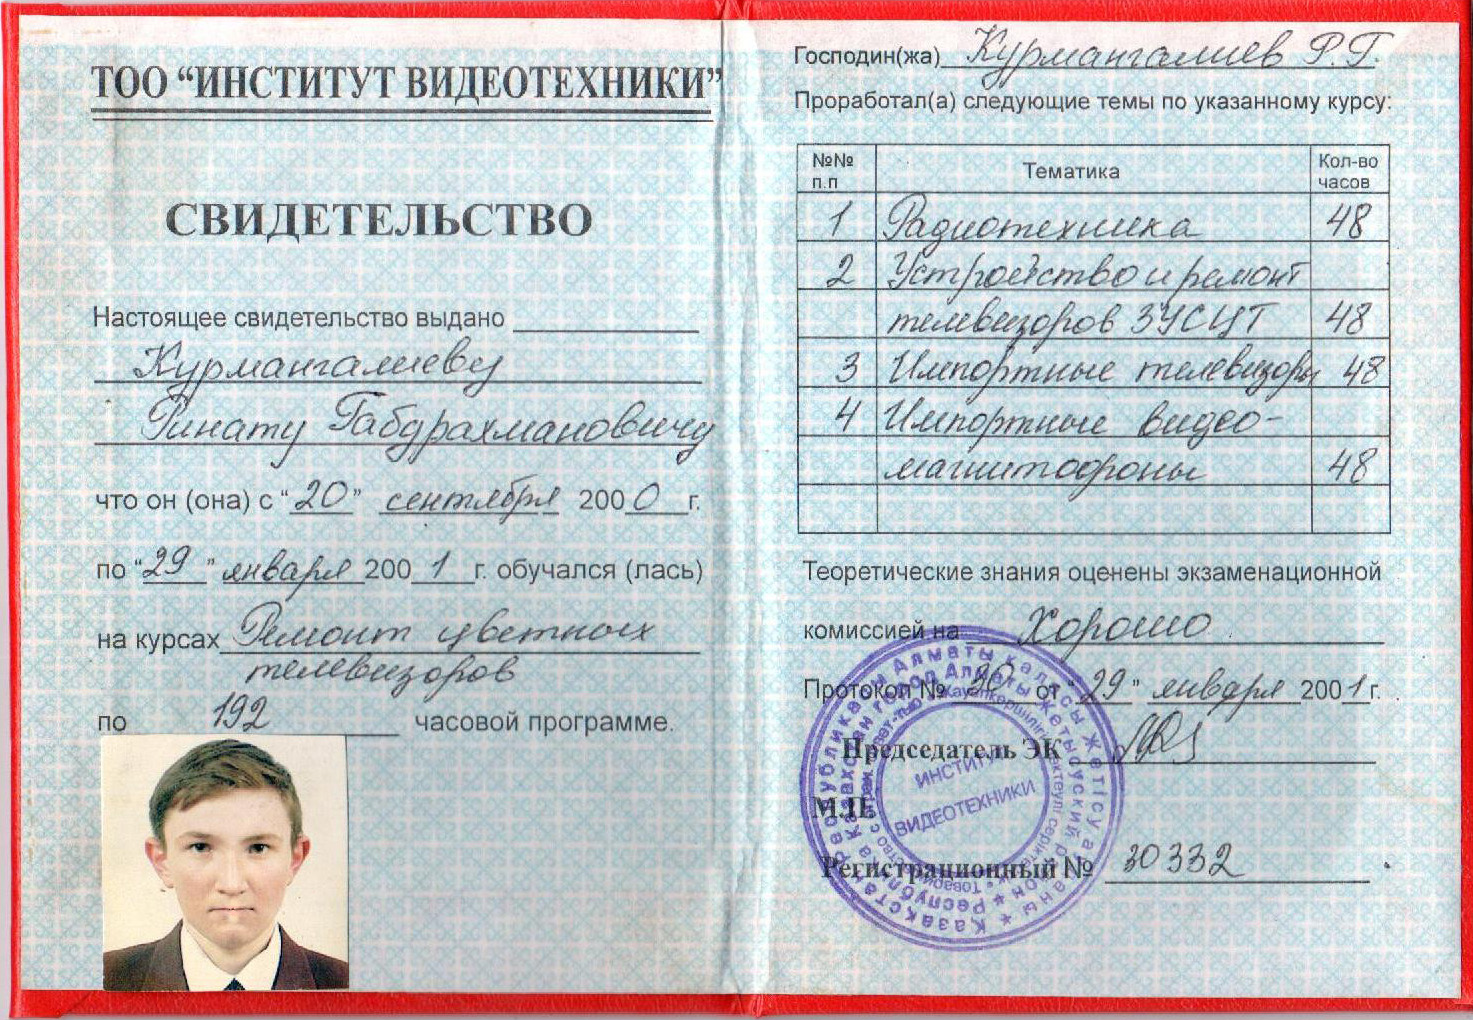 ТОО “ИНСТИТУТ ВИДЕОТЕХНИКИ”
СВИДЕТЕЛЬСТВО
Настоящее свидетельство выдано
Курмангалиеву
Ринату Габдрахмановичу
что он (она) с “20” сентября 2000 г.
по “29” января 2001 г. обучался (лась)
на курсах Ремонт цветных
телевизоров
по 192 часовой программе.
Господин(жа) Курмангалиев Р.Г.
Проработал(а) следующие темы по указанному курсу:
№№ п.п Тематика Кол-во часов
1 Радиотехника 48
2 Устройство и ремонт
телевизоров 3УСЦТ 48
3 Импортные телевизоры 48
4 Импортные видео-
магнитофоны 48
Теоретические знания оценены экзаменационной
комиссией на Хорошо
Протокол № 30 от “29” января 2001 г.
Председатель ЭК
М.П.
Регистрационный № 30332
ИНСТИТУТ
ВИДЕОТЕХНИКИ